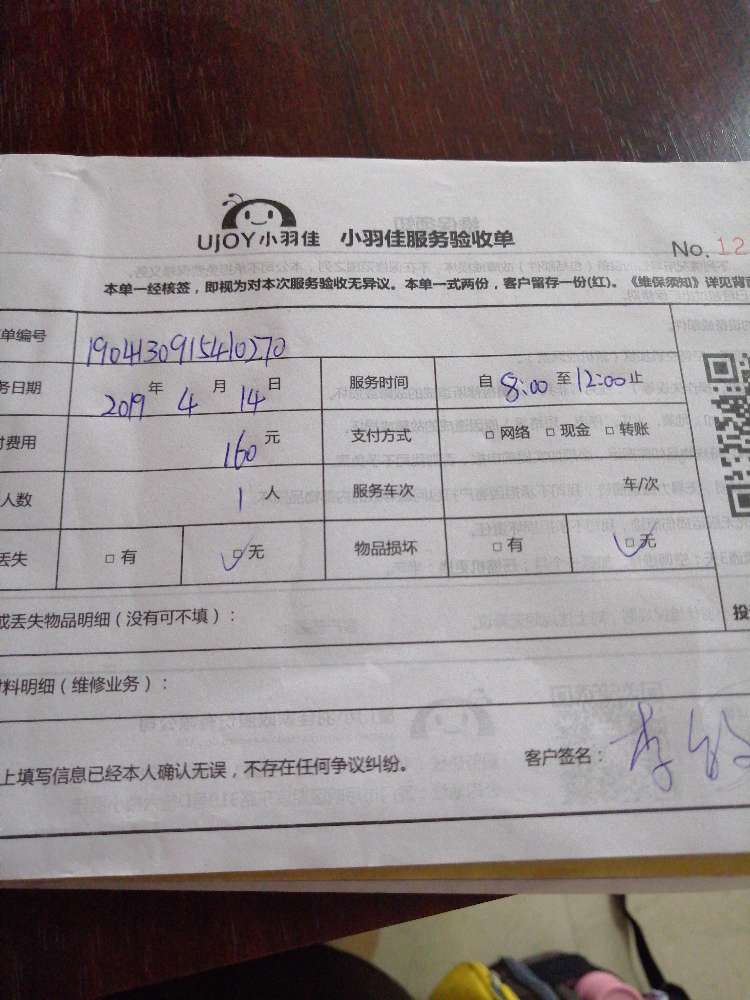 UjOY小羽佳 小羽佳服务验收单
No. 12
本单一经核签，即视为对本次服务验收无异议。本单一式两份，客户留存一份(红)。《维保须知》详见背面
单编号 1904130915410270
务日期 2019 年 4 月 14 日 服务时间 自 8:00 至 12:00 止
付费用 160 元 支付方式 □ 网络 □ 现金 □ 转账
人数 1 人 服务车次 车/次
丢失 □ 有 □ 无 物品损坏 □ 有 □ 无
或丢失物品明细（没有可不填）：
投
材料明细（维修业务）：
上填写信息已经本人确认无误，不存在任何争议纠纷。 客户签名：李敏